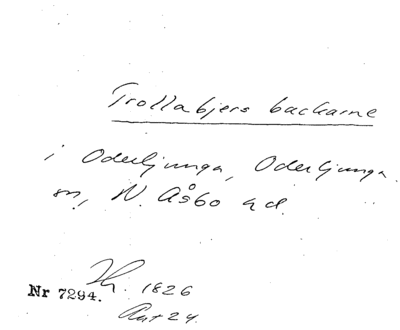 Trollabjers backarne
i Oderljunga, Oderljunga
sn, N. Åsbo hd.
1826
Nr 7294.
Ant 24.